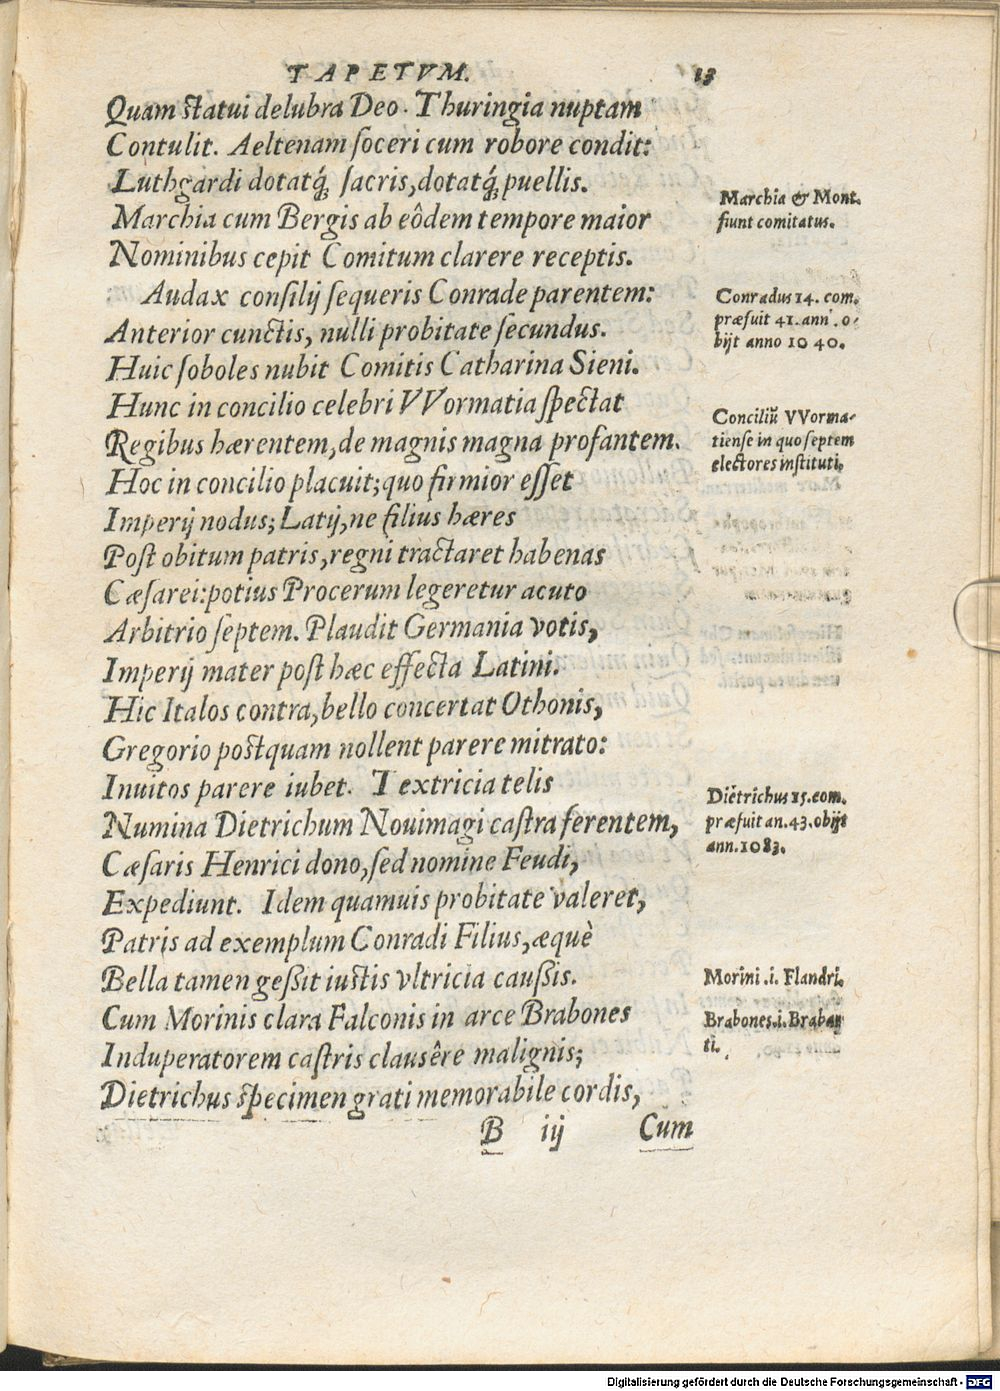 TAPETVM. 13
Quam statui delubra Deo. Thuringia nuptam
Contulit. Aeltenam soceri cum robore condit:
Luthgardi dotatq́; sacris, dotatq́; puellis.
Marchia & Mont.
fiunt comitatus.
Marchia cum Bergis ab eôdem tempore maior
Nominibus cepit Comitum clarere receptis.
Audax consilij sequeris Conrade parentem:
Conradus 14. com.
præfuit 41. ann. o-
bijt anno 1040.
Anterior cunctis, nulli probitate secundus.
Huic soboles nubit Comitis Catharina Sieni.
Hunc in concilio celebri VVormatia spectat
Conciliũ VVorma-
tiense in quo septem
electores instituti.
Regibus hærentem, de magnis magna profantem.
Hoc in concilio placuit; quo firmior esset
Imperij nodus; Latij, ne filius hæres
Post obitum patris, regni tractaret habenas
Cæsarei: potius Procerum legeretur acuto
Arbitrio septem. Plaudit Germania votis,
Imperij mater post hæc effecta Latini.
Hic Italos contra, bello concertat Othonis,
Gregorio postquam nollent parere mitrato:
Inuitos parere iubet. Textricia telis
Dietrichus 15. com.
præfuit an. 43. obijt
ann. 1083.
Numina Dietrichum Nouimagi castra ferentem,
Cæsaris Henrici dono, sed nomine Feudi,
Expediunt. Idem quamuis probitate valeret,
Patris ad exemplum Conradi Filius, æquè
Bella tamen geßit iustis vltricia caußis.
Morini .i. Flandri.
Brabones .i. Braban
ti.
Cum Morinis clara Falconis in arce Brabones
Induperatorem castris clausêre malignis;
Dietrichus specimen grati memorabile cordis,
B iij Cum
Digitalisierung gefördert durch die Deutsche Forschungsgemeinschaft - DFG